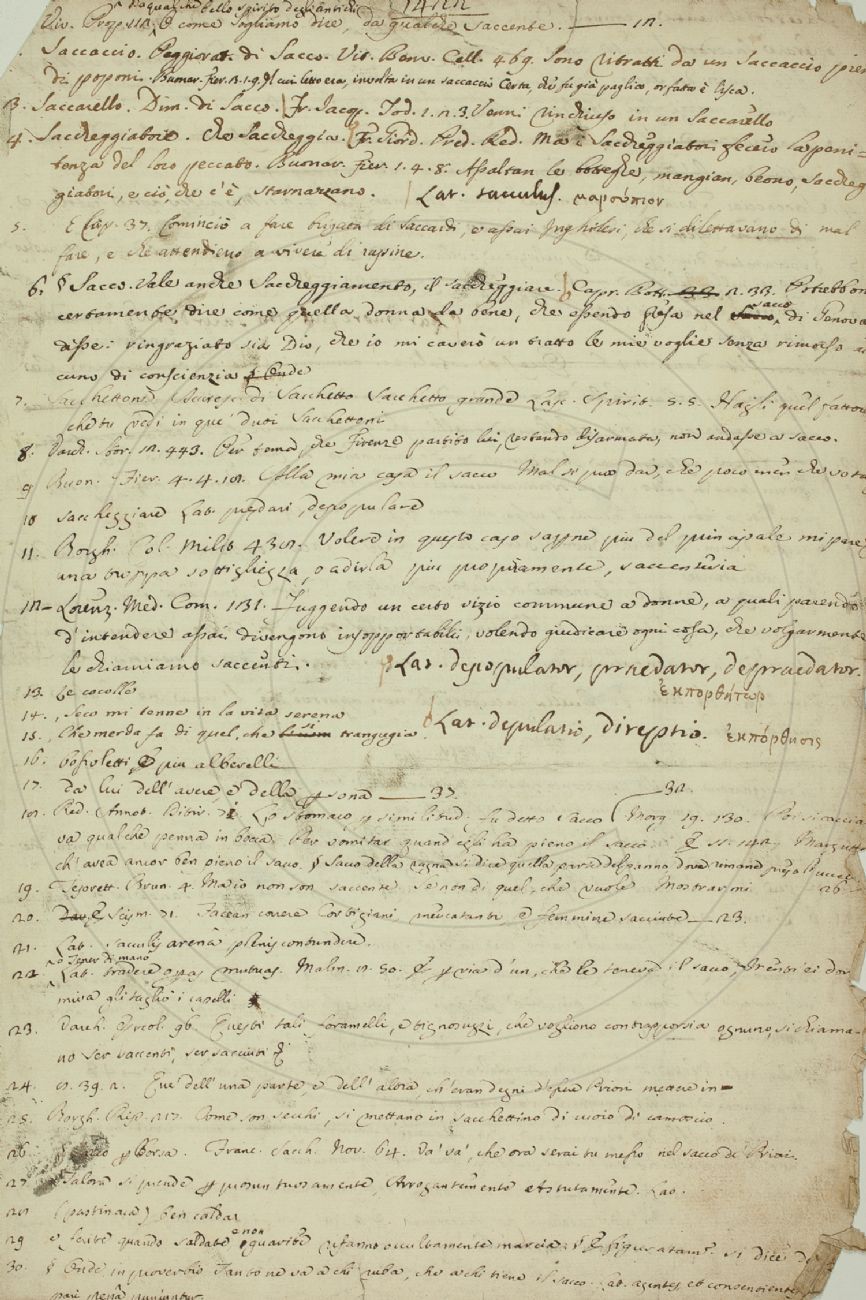 da qualche bello spirito
Viv. Prop. 112. E come sogliamo dire, da qualche saccente. 12.
Saccaccio. Peggiorat. di Sacco. Vit. Benv. Cell. 469. Sono ritratti da un saccaccio
di poponi. Buonar. Fier. cui letto era, involta in un saccaccio Certa, che fu già paglia, or fatta è lisca.
3. Saccarello. Dim. di Sacco. Fr. Jacop. Tod. 1. 2. 3. Venni rinchiuso in un Saccarello
4. Saccheggiatore. Che Saccheggia. Fr. Giord. Pred. Red. Ma i Saccheggiatori fecero la peni=
tenza del loro peccato. Buonar. Fier. 1. 4. 8. Assaltan le botteghe, mangian, beono, Saccheg
giatori, e ciò, che c'è, starnazzano. Lat. sacculus. μαρσύπιον
5. E Cap. 37. Cominciò a fare brigata di Saccardi, e assai Inghilesi, che si dilettavano di mal
fare, e che attendieno a vivere di rapine.
6. § Sacco. Vale anche Saccheggiamento, il saccheggiare. Capr. Bott. 2. 33. Potrebbon
certamente dire come quella donna da bene, che essendo presa nel sacco di Genova
disse: ringraziato sia Dio, che io mi caverò un tratto le mie voglie senza rimorso a
cuno di conscienzia
7. Sacchettone Accresc. di Sacchetto Sacchetto grande Lasc. Spirit. 5. 5. quel fatto
che tu vedi in que' duoi Sacchettoni
8. Varch. Stor. 12. 443. Per tema che Firenze partito lui, restando disarmata, non andasse a sacco.
9 Buon. Fier. 4. 4. 18. Alla mia casa il sacco Mal si può dar, che poco men che vota
10 saccheggiare Lat. predari, depopulare
11. Borgh. Col. Milit 432. Volere in questo caso saperne più del principale mi pare
una troppa sottigliezza, o a dirla più propiamente, saccenteria
12- Lorenz. Med. Com. 1131. Fuggendo un certo vizio commune a donne, a quali parendo
d'intendere assai divengono insopportabili, volendo giudicare ogni cosa, che volgarmente
le chiamiamo saccenti. Lat. depopulator, praedator, depraedator.
ἐκπορθήτωρ
13. Le cocolle
14. , Seco mi tenne in la vita serena
15. , Che merda fa di quel, che si trangugia Lat. depulatio, direptio. ἐκπόρθησις
16. bossoletti, e più alberelli
17. da lui dell'avere, e della persona 37.
18. Red. Annot. Ditir. Lo stomaco per similitud. fu detto sacco Morg. 19. 130. Poi si caccia 32.
va qualche penna in bocca, Per vomitar quand'egli ha pieno il sacco. Margutte
ch'avea ancor ben pieno il saco. § Saco della ragna si dice quella parte del panno dove rimane preso l'uccel 26
19. Tesorett. Brun. 4. Ma io non son saccente Se non di quel, che vuole Mostrarmi
20. Facean covere Cortigiani mercatanti e femmine sacciute 23.
21. Lat. sacculis arena plenis contundere.
o Tener di mano
22 Lat. tradere operas mutuas. Malm. 2. 50. E per via d'un, che le teneva il sacco, Mentr'ei dor
miva gli tagliò i capelli
23. Varch. Ercol. 96. Questi tali foramelli, e tignosuzzi, che vogliono contrapporsia ognuno, si chiama=
no ser saccenti, ser sacciuti
24. 2. 39. 2. Que' dell'una parte, e dell'altra ch'eran degni d'esser Priori mettere in-
25. Borgh. Rip. 217. Come son secchi, si mettano in sacchettino di cuoio di camoscio
26. § Sacco per Borsa. Franc. Sacch. Nov. 64. Va' va', che ora serai tu messo nel sacco de' Priori.
27. Talora si prende per prosuntuosamente, Arrogantemente Astutamente. Lat.
28 (pastinaca) ben calda
29 e ferite quando saldate e non guarite rifanno occultamente marcia: § E figuratam.e si dice
30. § Onde in proverbio Tanto ne va a chi ruba, che a chi tiene il sacco. Lat. agentes et consentientes
pari poena puniuntur.